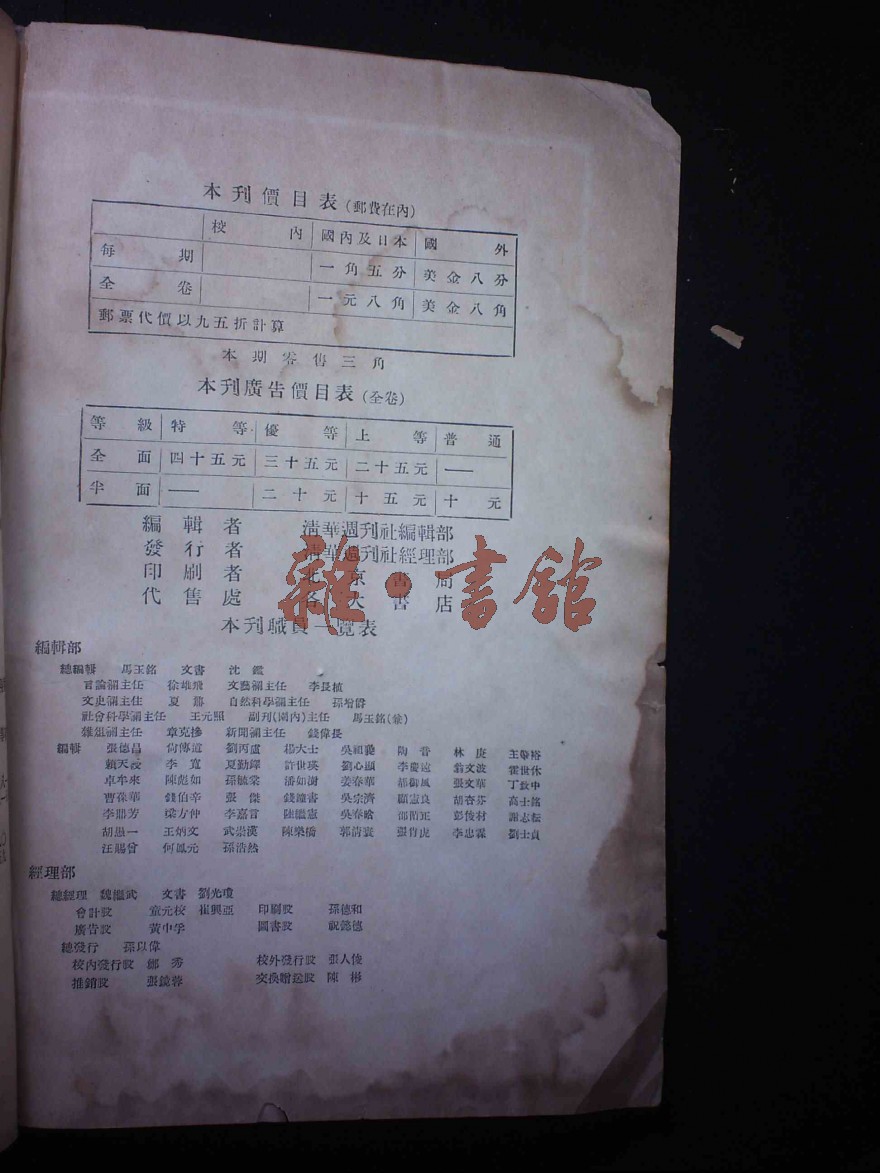 本刊價目表(郵費在內)
校內 國內及日本 國外
每期 一角五分 美金八分
全卷 一元八角 美金八角
郵票代價以九五折計算
本期零售三角
本刊廣告價目表(全卷)
等級 特等 優等 上等 普通
全面 四十五元 三十五元 二十五元 ——
半面 —— 二十元 十五元 十元
編輯者 清華週刊社編輯部
發行者 清華週刊社經理部
印刷者 北京書局
代售處 各大書店
雜·書館
本刊職員一覽表
編輯部
總編輯 馬玉銘 文書 沈鑑
言論欄主任 徐雄飛 文藝欄主任 李長植
文史欄主任 夏鼐 自然科學欄主任 孫增爵
社會科學欄主任 王元照 副刊(園內)主任 馬玉銘(兼)
雜俎欄主任 章克摻 新聞欄主任 錢偉長
編輯 張德昌 尙傳道 劉丙廬 楊大士 吳組襄 陶音 林庚 王肇裕
賴天授 李寬 夏勤鐸 許世瑛 劉心顯 李慶遠 翁文波 霍世休
卓牟來 陳彪如 孫毓棠 潘如澍 姜春華 胡御風 張文華 丁致中
曹葆華 錢伯辛 張傑 錢鍾書 吳宗濟 顧憲良 胡杏芬 高士銘
李鼎芳 梁方仲 李嘉言 陸繼憲 吳春晗 邵循正 彭俊材 謝志耘
胡愚一 王炳文 武崇漢 陳樂橋 郭清寰 張肖虎 李忠霖 劉士貞
汪賜曾 何鳳元 孫浩然
經理部
總經理 魏繼武 文書 劉光瓊
會計股 童元校 崔興亞 印刷股 孫德和
廣告股 黃中孚 圖書股 祝懿德
總發行 孫以偉
校內發行股 鄭秀 校外發行股 張人俊
推銷股 張鏡蓉 交換贈送股 陳彬